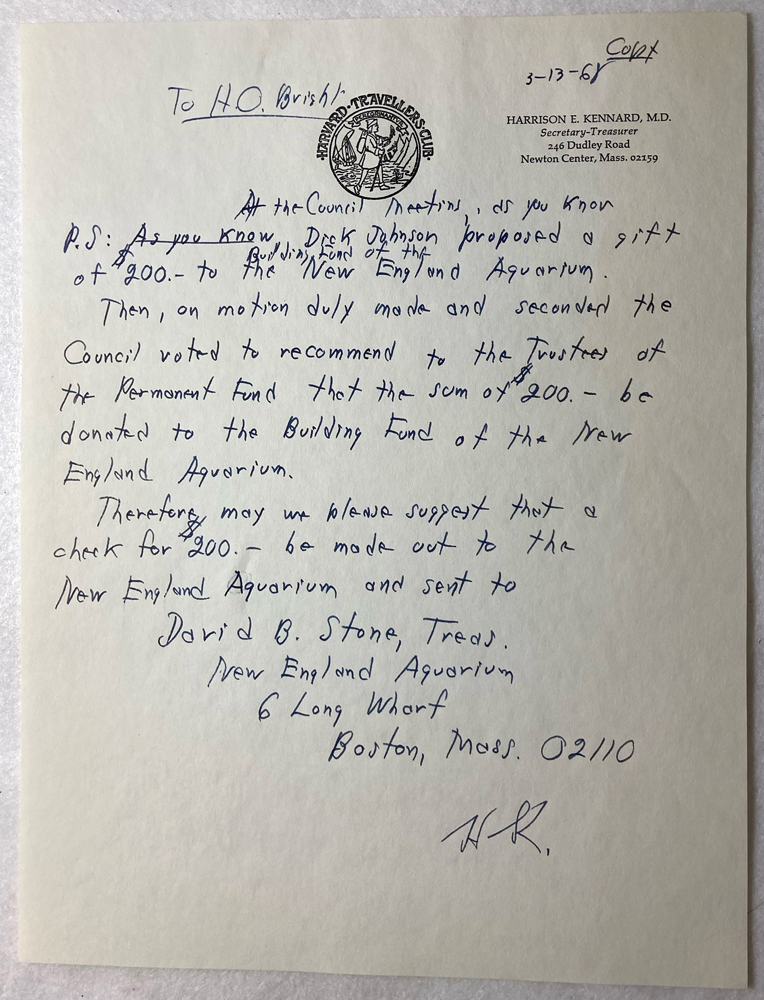 Copy
3-13-68
To H.O. Bright
·HARVARD·TRAVELLERS·CLUB·
HARRISON E. KENNARD, M.D.
Secretary-Treasurer
246 Dudley Road
Newton Center, Mass. 02159
At the Council Meeting, as you know
P.S: As you know, Dick Johnson proposed a gift
Building Fund of the
of $200.- to the New England Aquarium.
Then, on motion duly made and seconded the
Council voted to recommend to the Trustees of
the Permanent Fund that the sum of $200.- be
donated to the Building Fund of the New
England Aquarium.
Therefore, may we please suggest that a
check for $200.- be made out to the
New England Aquarium and sent to
David B. Stone, Treas.
New England Aquarium
6 Long Wharf
Boston, Mass. 02110
H K.